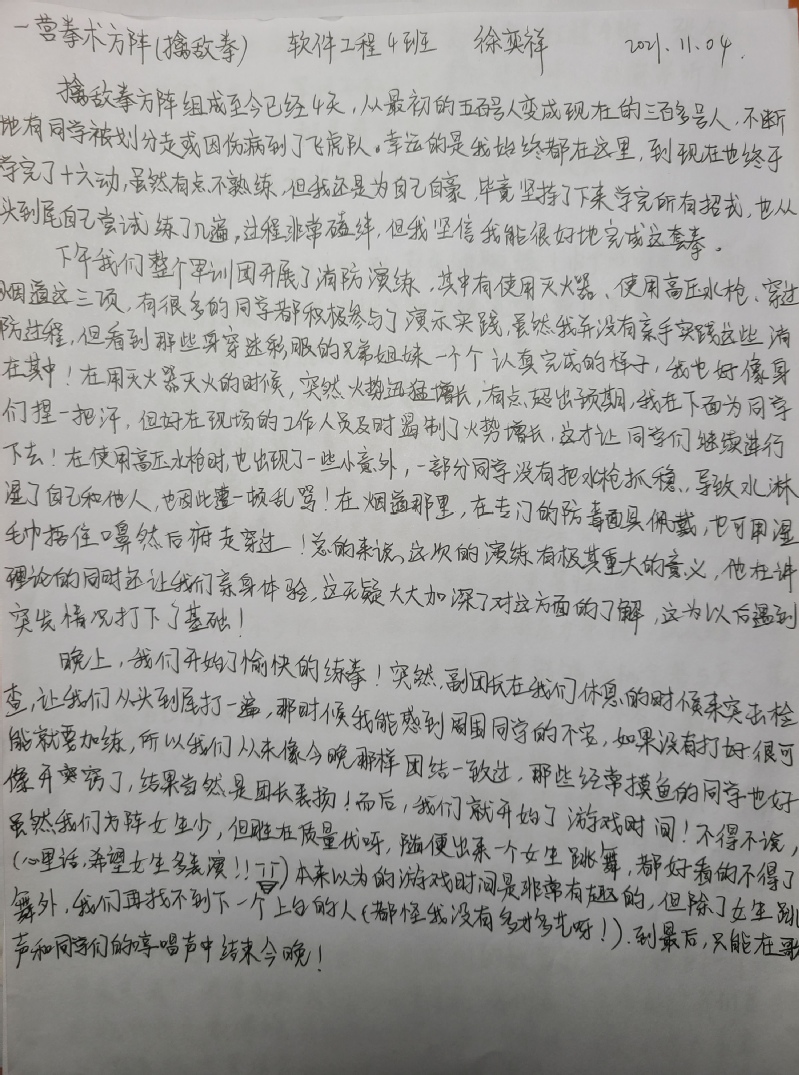 一营拳术方阵(擒敌拳) 软件工程4班 徐奕祥 2021.11.04.
擒敌拳方阵组成至今已经4天，从最初的五百号人变成现在的三百多号人，不断
地有同学被划分走或因伤病到了飞虎队。幸运的是我始终都在这里，到现在也终于
学完了十六动，虽然有点不熟练，但我还是为自己自豪，毕竟坚持了下来学完所有招式，也从
头到尾自己尝试练了几遍，过程非常磕绊，但我坚信我能很好地完成这套拳。
下午我们整个军训团开展了消防演练，其中有使用灭火器、使用高压水枪、穿过
烟道这三项，有很多的同学都积极参与了演示实践，虽然我并没有亲手实践这些消
防过程，但看到那些身穿迷彩服的兄弟姐妹一个个认真完成的样子，我也好像身
在其中！在用灭火器灭火的时候，突然火势迅猛增长，有点超出预期，我在下面为同学
们捏一把汗，但好在现场的工作人员及时遏制了火势增长，这才让同学们继续进行
下去！在使用高压水枪时，也出现了一些小意外，一部分同学没有把水枪抓稳、导致水淋
湿了自己和他人，也因此遭一顿乱骂！在烟道那里，在专门的防毒面具佩戴，也可用湿
毛巾捂住口鼻然后痈走穿过！总的来说，这次的演练有极其重大的意义，他在讲
理论的同时还让我们亲身体验，这无疑大大加深了对这方面的了解，这为以后遇到
突发情况打下了基础！
晚上，我们开始了愉快的练拳！突然，副团长在我们休息的时候来突击检
查，让我们从头到尾打一遍，那时候我能感到周围同学的不安，如果没有打好很可
能就要加练，所以我们从未像今晚那样团结一致过，那些经常摸鱼的同学也好
像开窍了，结果当然是团长表扬！而后，我们就开始了游戏时间！不得不说，
虽然我们方阵女生少，但胜在质量优呀，随便出来一个女生跳舞，都好看的不得了
(心里话，希望女生多表演！！)本来以为的游戏时间是非常有趣的，但除了女生跳
舞外，我们再找不到下一个上台的人(都怪我没有多才多艺呀！)．到最后，只能在歌
声和同学们的哼唱声中结束今晚！